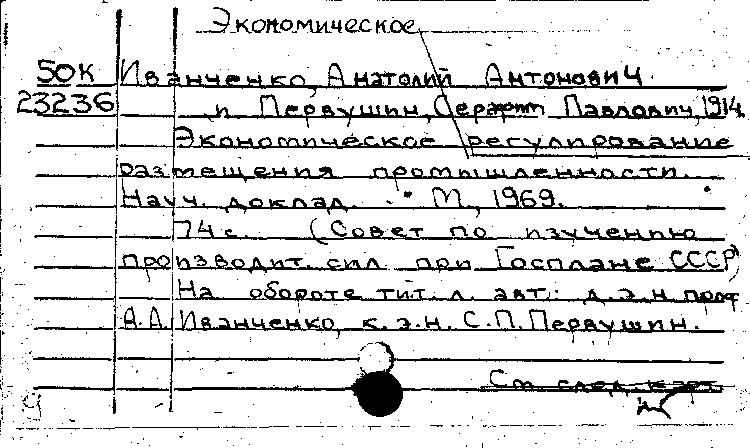 Экономическое
50К Иванченко, Анатолий Антонович
23236 и Первушин, Серафим Павлович, 1914
Экономическое регулирование
размещения промышленности.
Науч. доклад. М., 1969.
74 с. (Совет по изучению
производит. сил при Госплане СССР)
На обороте тит. л. авт.: д.э.н. проф.
А.А. Иванченко, к.э.н. С.П. Первушин.
См. след. карт.